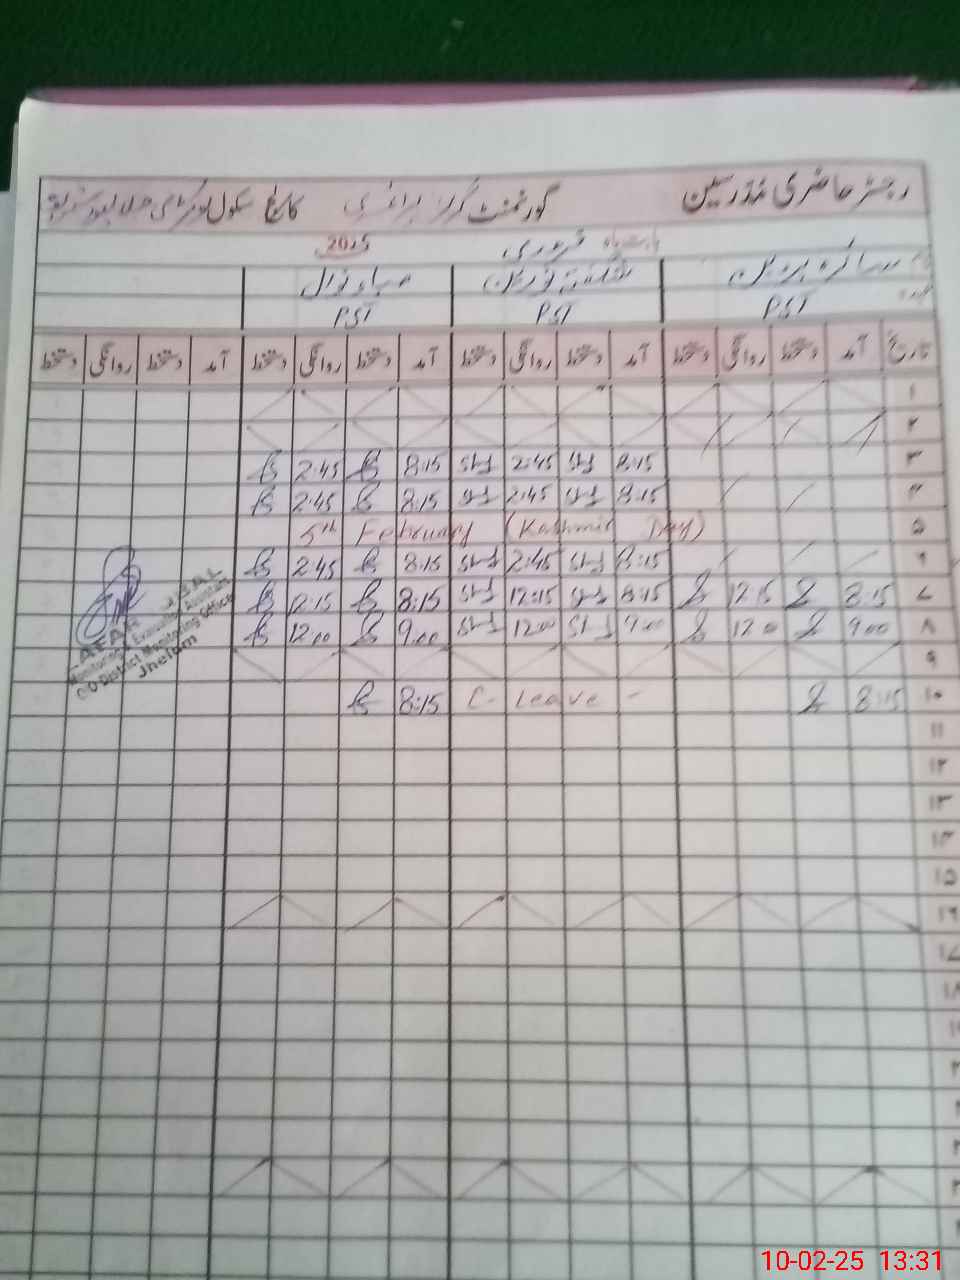 رجسٹر حاضری مدرسین گورنمنٹ گرلز پرائمری سکول
بابت ماہ فروری 2025
سائرہ پروین صباء نوال
PST PST PST
تاریخ آمد دستخط روانگی دستخط آمد دستخط روانگی دستخط آمد دستخط روانگی دستخط آمد دستخط روانگی دستخط
۱
۲
۳ 8:15 2:45 8:15 2:45
۴ 8:15 2:45 8:15 2:45
۵ 5th February (Kashmir Day)
۶ 8:15 2:45 8:15 2:45
۷ 8:15 12:15 8:15 12:15 8:15 12:15
۸ 9:00 12:00 9:00 12:00 9:00 12:00
۹
۱۰ 8:15 C-Leave - 8:15
۱۱
۱۲
۱۳
۱۴
۱۵
۱۶
۱۷
۱۸
Monitoring & Evaluation Assistant
C/O District Monitoring Office
Jhelum
10-02-25 13:31